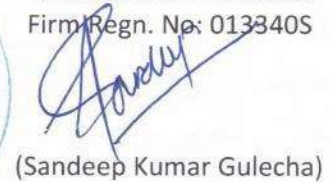 Firm Regn. No: 013340S
(Sandeep Kumar Gulecha)